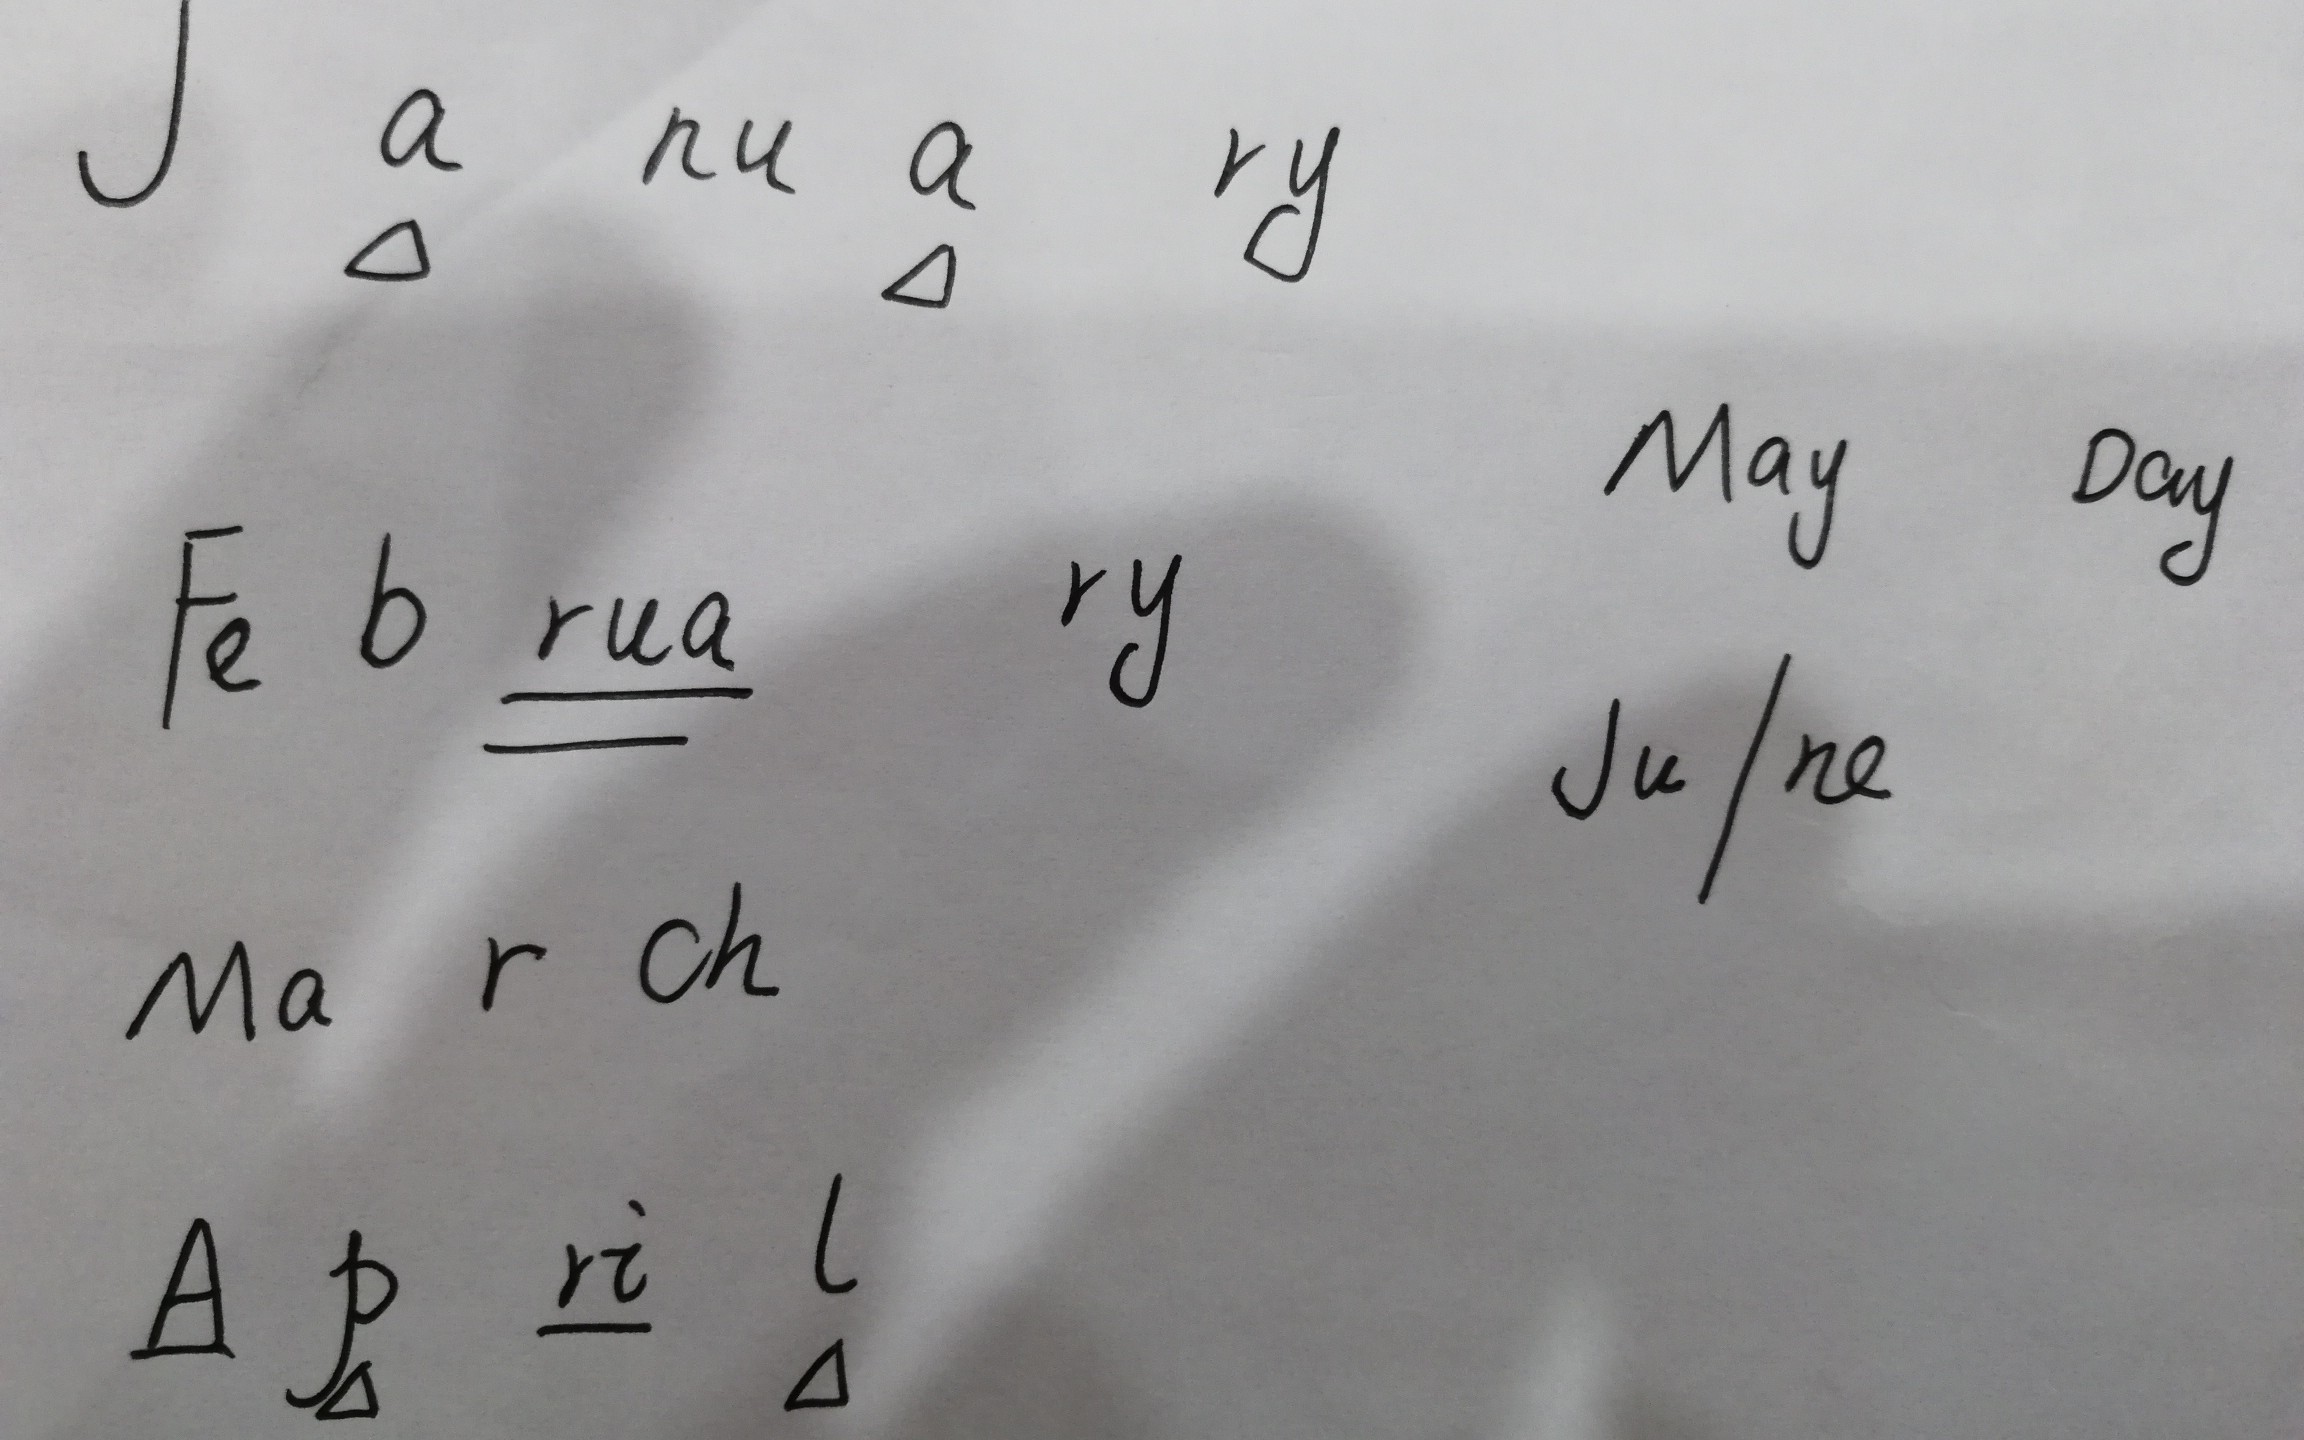 J a nu a ry
Fe b rua ry
Ma r ch
A p ri l
May Day
Ju/ne